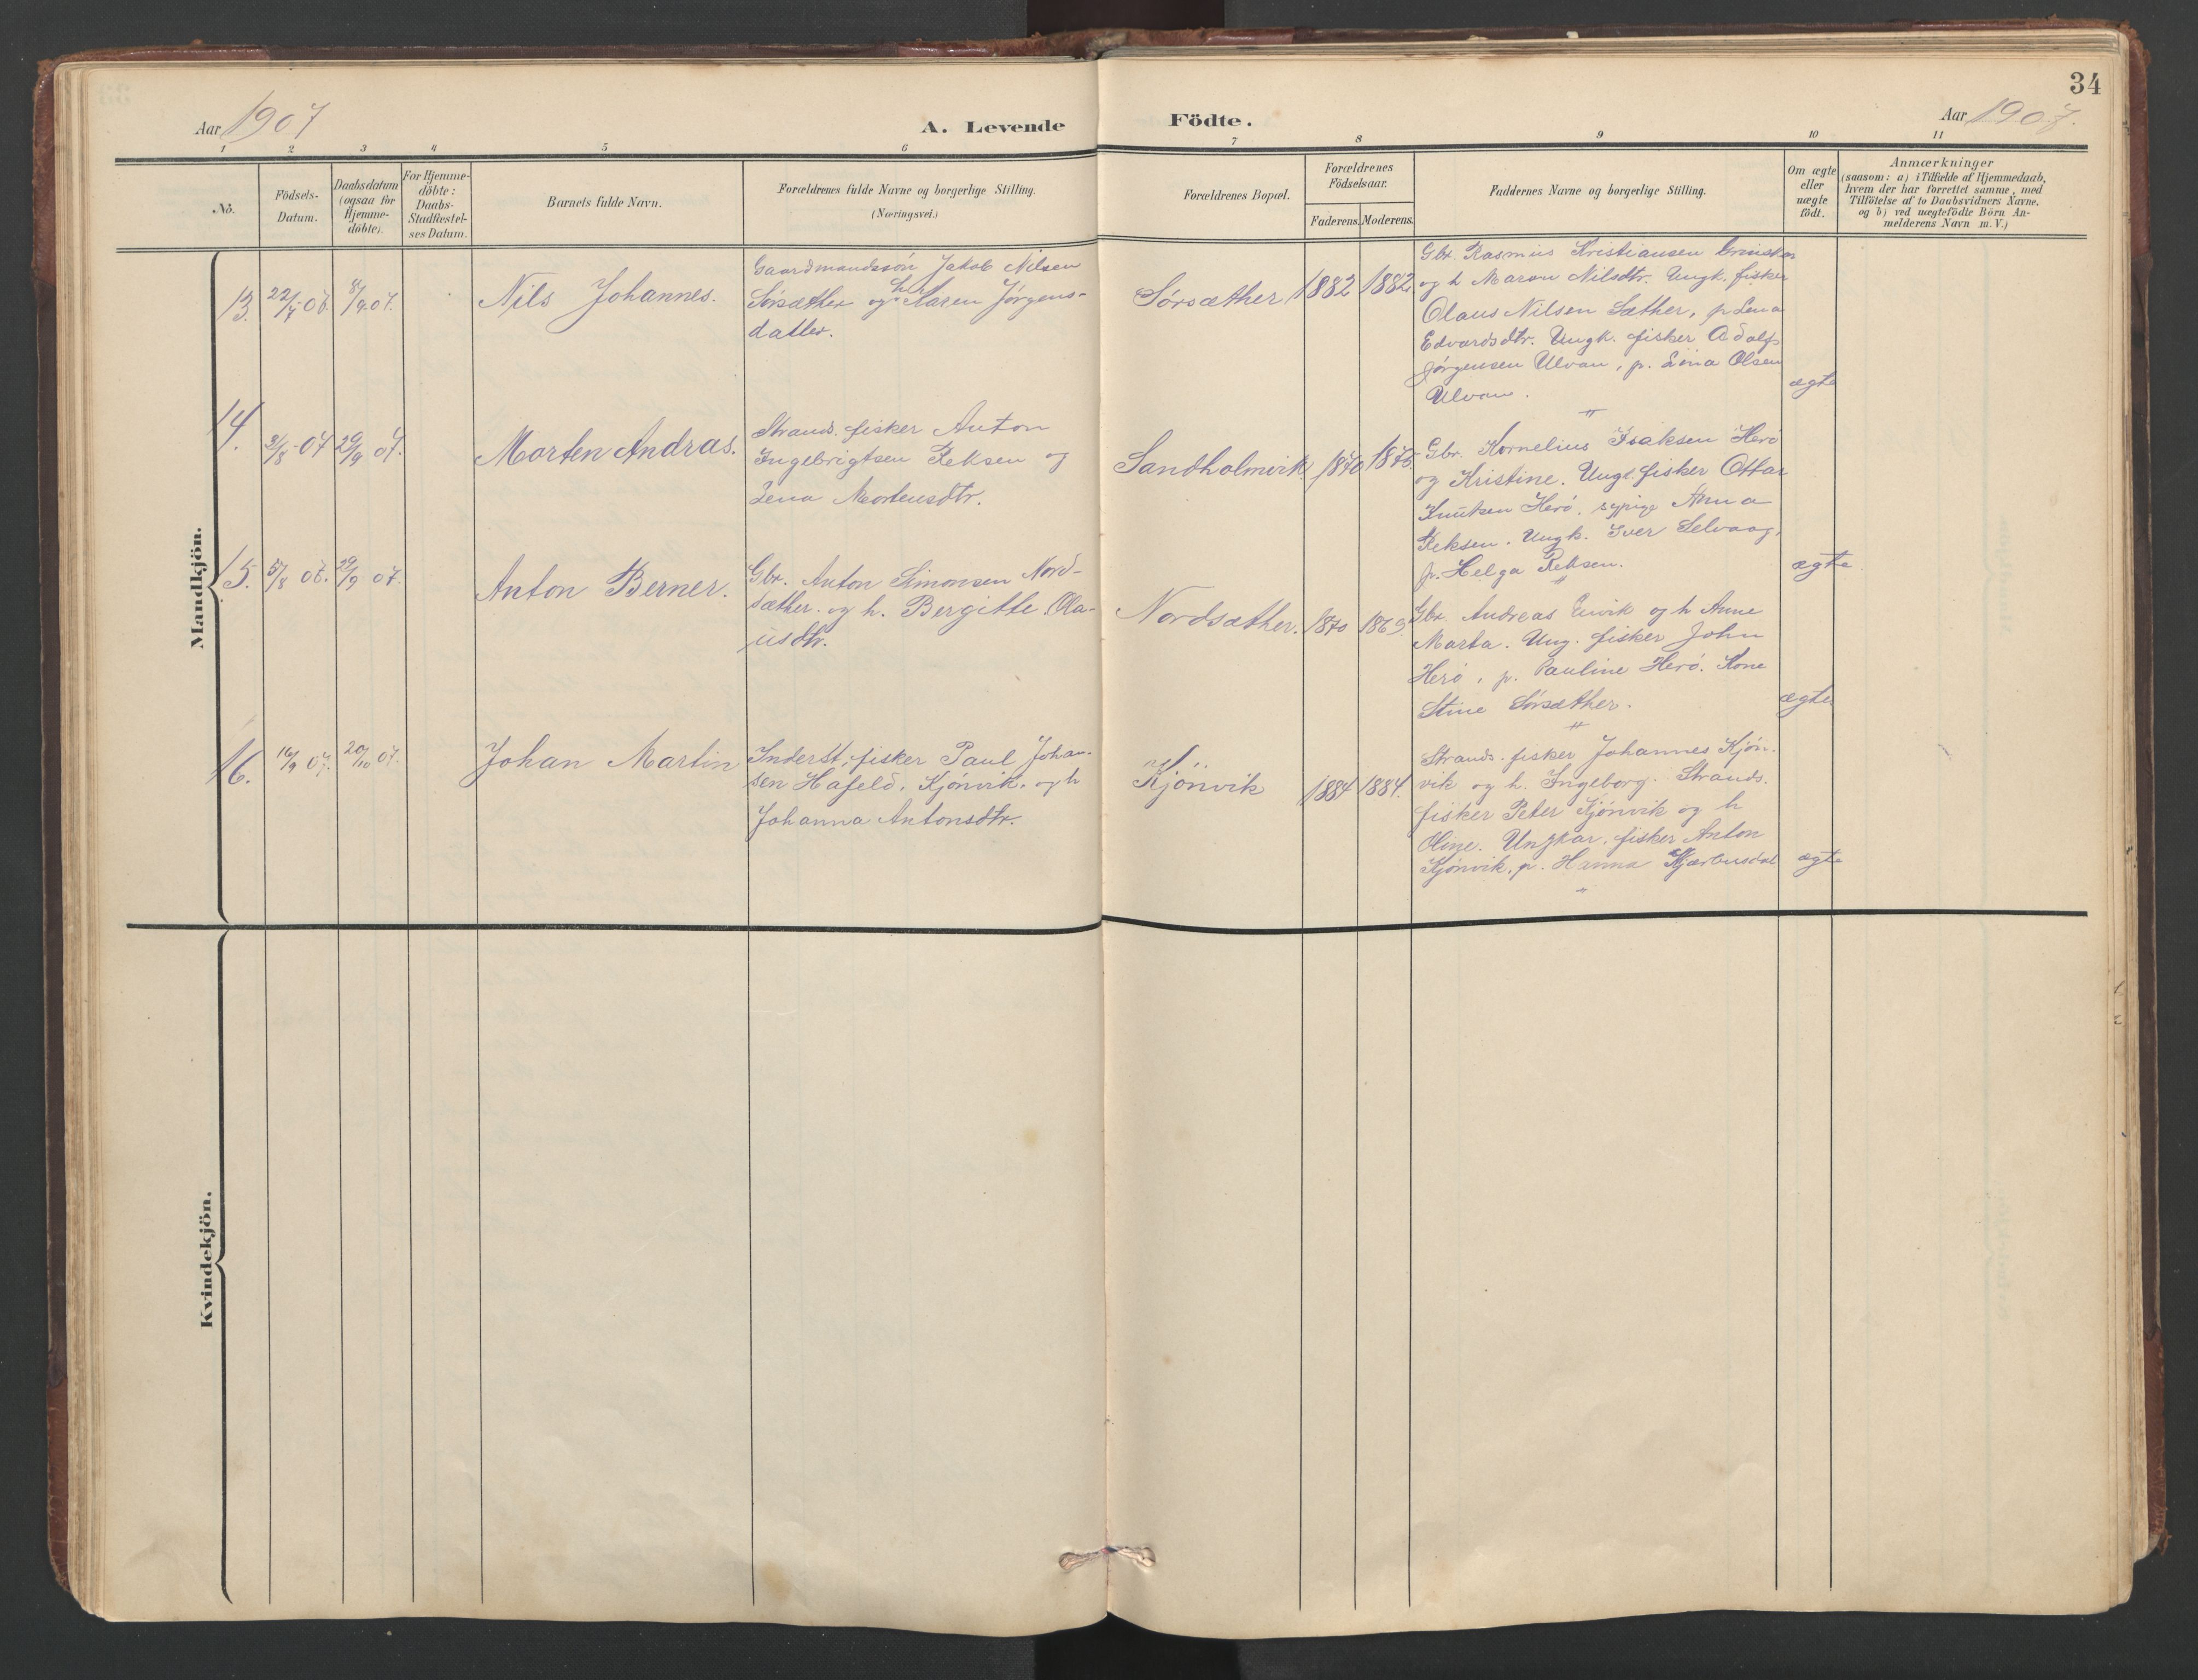 34
Aar 1907
A. Levende Födte.
Aar 1907.
1 2 3 4 5 6 7 8 9 10 11
No.
Födsels-Datum.
Daabsdatum (ogsaa för Hjemme-döbte).
For Hjemme-döbte: Daabs-Stadfæstel-ses Datum.
Barnets fulde Navn.
Forældrenes fulde Navne og borgerlige Stilling.
(Næringsvei.)
Forældrenes Bopæl.
Forældrenes Födselsaar.
Faderens. Moderens.
Faddernes Navne og borgerlige Stilling.
Om ægte eller uægte födt.
Anmærkninger
(saasom: a) i Tilfælde af Hjemmedaab,
hvem der har forrettet samme, med
Tilföielse af to Daabsvidners Navne,
og b) ved uægtefödte Börn An-
melderens Navn m.V.)
Mandkjön.
13. 22/7 07. 8/9 07.
Nils Johannes.
Gaardmandssön Jakob Nilsen
Sörsæther og h. Karen Jörgens-
datter.
Sörsæther 1882 1882
Gbr. Rasmus Kristiansen
og h Maren Nilsdtr. Ungk. fisker
Olaus Nilsen Sæther, p Lena
Edvardsdtr. Ungk. fisker Adolf
Jörgensen Ulvan, p. Lina Olsen
Ulvan.
ægte
"
14. 3/8 07 29/9 07.
Morten Andras.
Strands. fisker Anton
Ingebrigtsen Reksen og
Lena Mortensdtr.
Sandholmvik 1870 1876.
Gbr. Kornelius Isaksen Herö
og Kristine. Ungk. fisker Ottar
Knutsen Herö, sypige Anna
Reksen. Ungk. Iver Selvaag,
p. Helga Reksen.
ægte
"
15. 5/8 07. 29/9 07.
Anton Berner.
Gbr. Anton Simonsen Nord-
sæther. og h. Bergitte Ola-
usdtr.
Nordsæther. 1870 1869.
Gbr. Andreas og h Anne
Marta. Ung. fisker John
Herö, p. Pauline Herö. Kone
Stine Sörsæther.
ægte
"
16. 16/9 07. 20/10 07.
Johan Martin
Inderst, fisker Paul Johan-
sen Hafeld, Kjönvik. og h
Johanna Antonsdtr.
Kjönvik 1884 1884.
Strands. fisker Johannes Kjön-
vik og h. Ingeborg. Strands.
fisker Peter Kjönvik og h
Oline. Ungkar, fisker Anton
Kjönvik, p. Hanna
ægte
"
Kvindekjön.